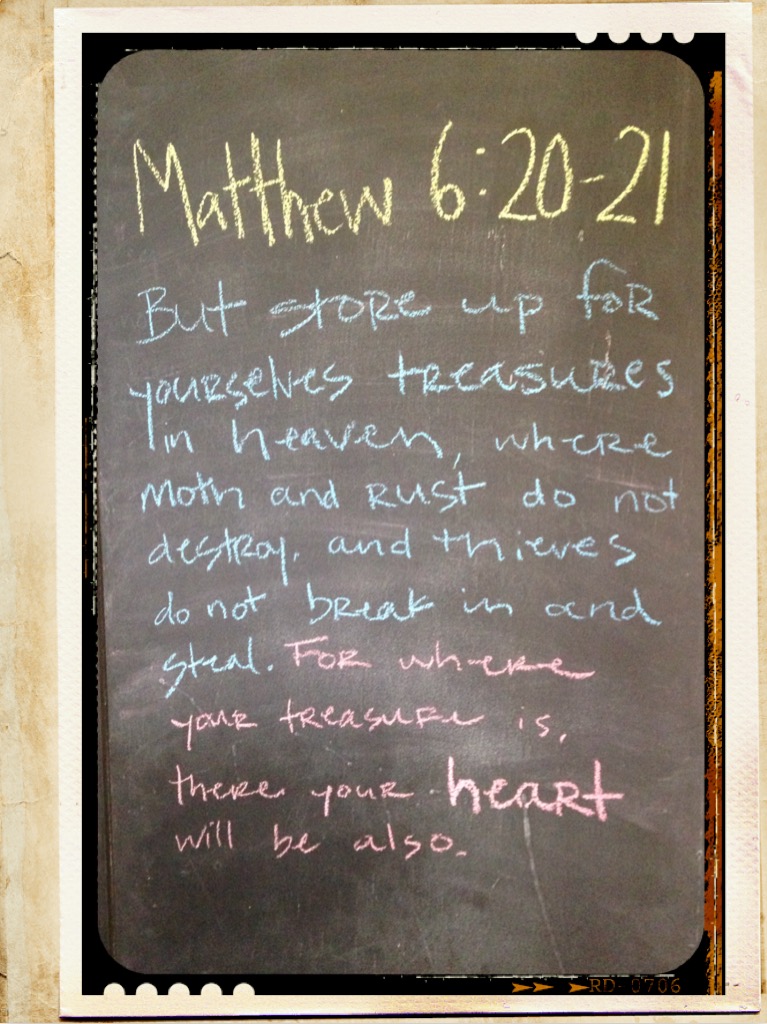 Matthew 6:20-21
But store up for
yourselves treasures
in heaven, where
moth and rust do not
destroy, and thieves
do not break in and
steal. For where
your treasure is,
there your heart
will be also.
RD-0706